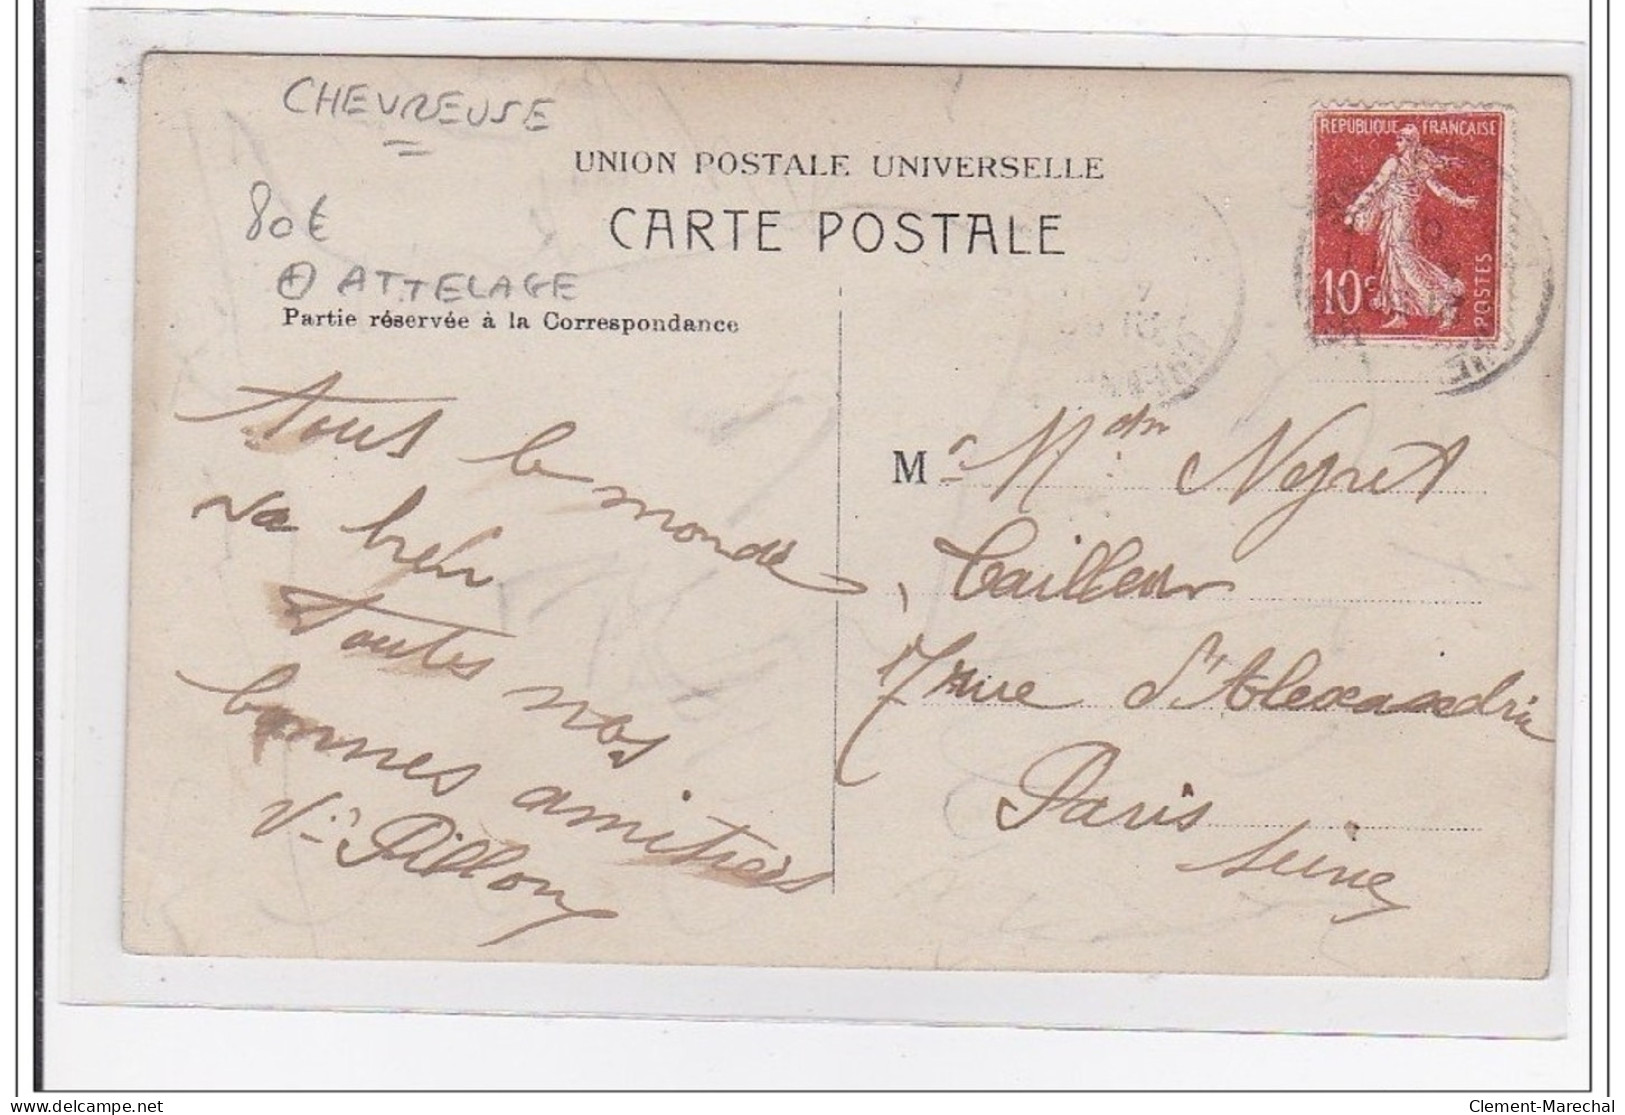 CHEVREUSE
UNION POSTALE UNIVERSELLE
80€
CARTE POSTALE
+ ATTELAGE
Partie réservée à la Correspondance
REPUBLIQUE FRANÇAISE
10c
POSTES
tous le monde
va bien
toutes nos
bonnes amitiés
Vve Pillon
M
Negret
Tailleur
17 rue d'Alexandrie
Paris
Seine
delcampe.net
Clement-Marechal